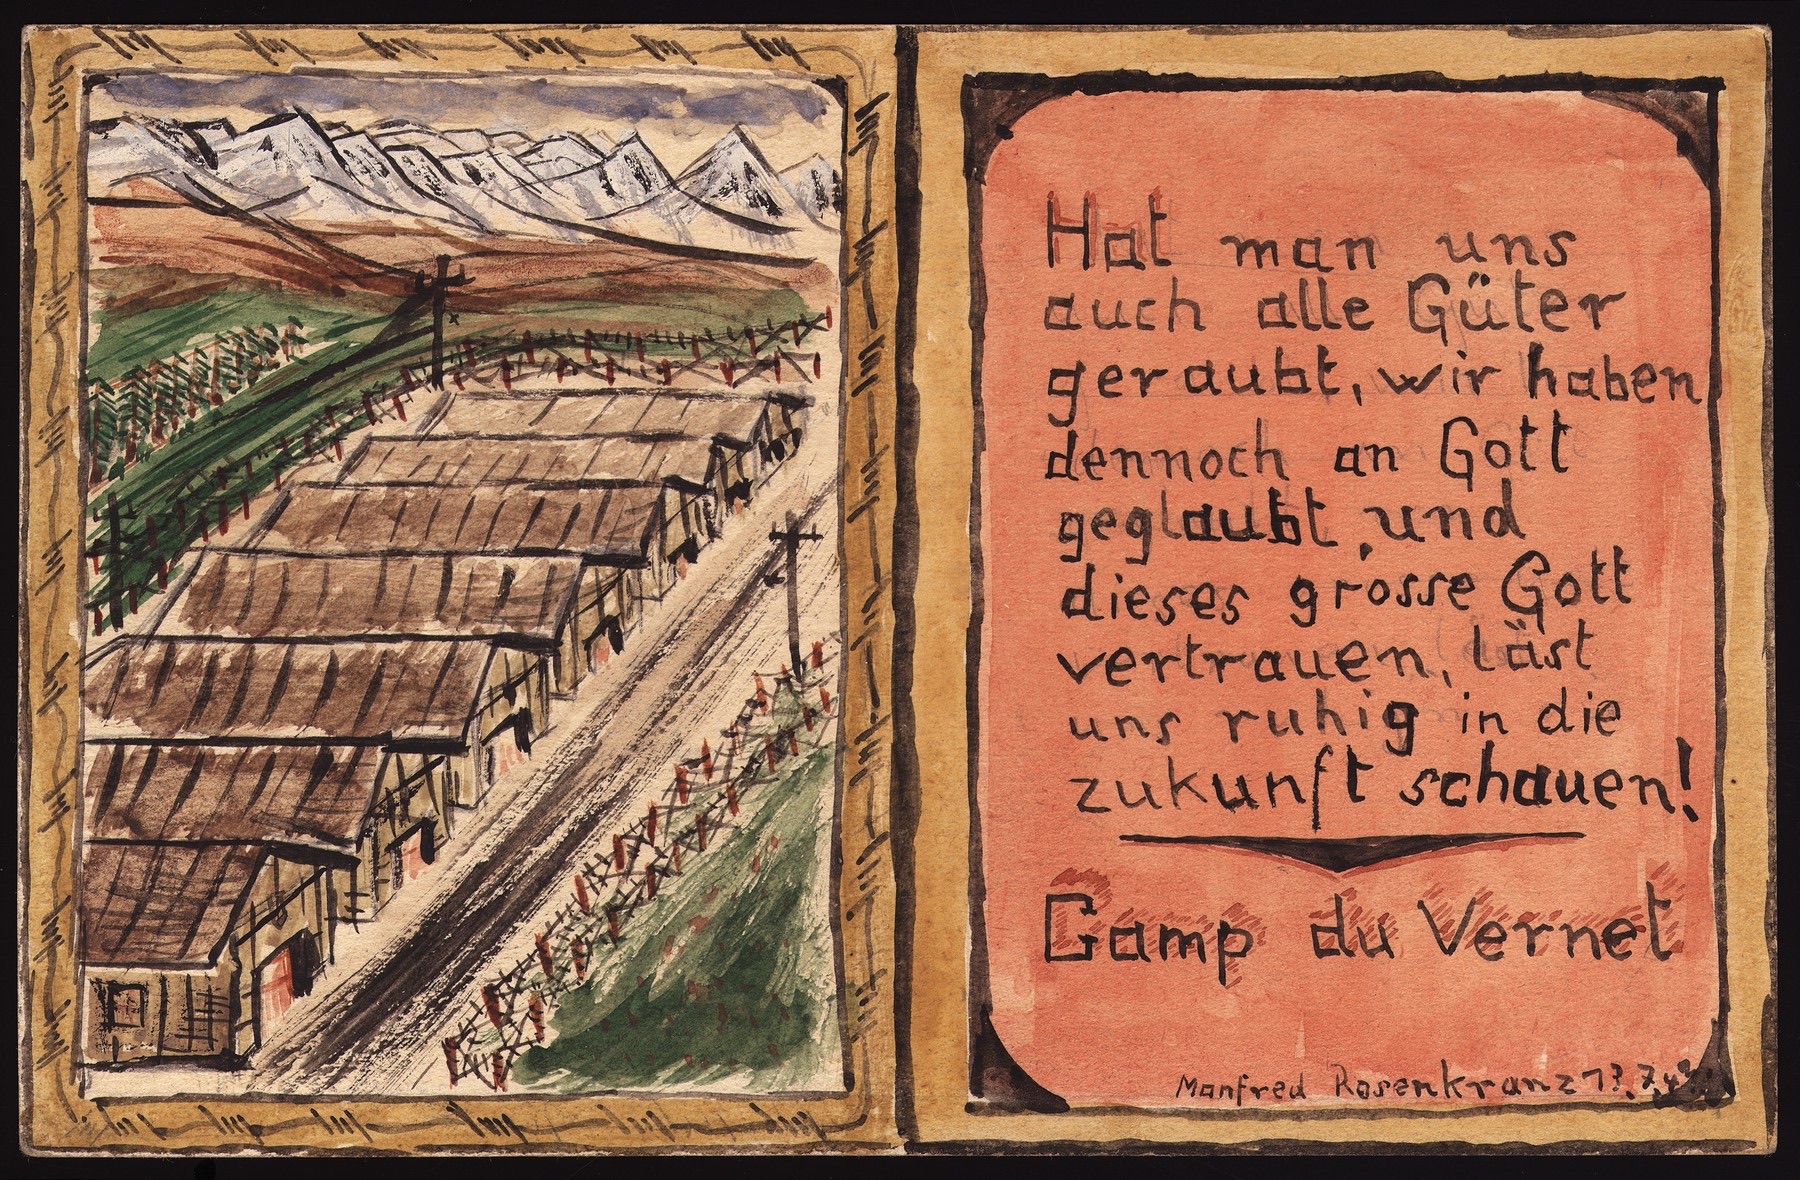 Hat man uns
auch alle Güter
geraubt, wir haben
dennoch an Gott
geglaubt, und
dieses grosse Gott
vertrauen, läst
uns ruhig in die
zukunft schauen!
Camp du Vernet
Manfred Rosenkranz